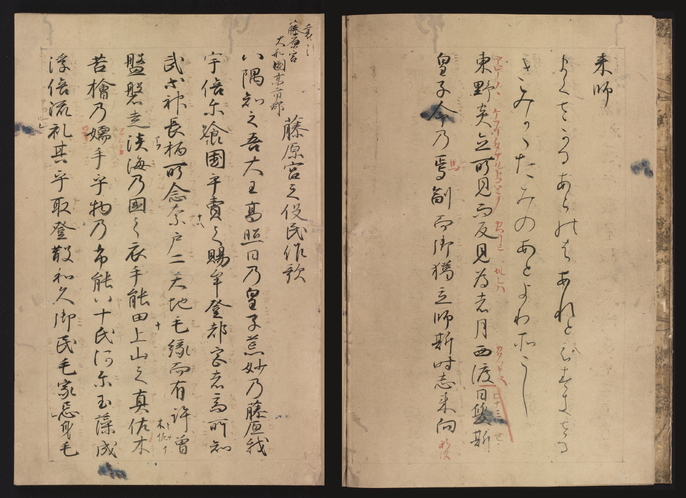 来師
まくさかるあらのはあれとはすきさる
きみかかたみのあとよりそこし
東野炎立所見而反見為者月西渡日雙斯
皇子命乃焉副而御獦立師斯時志来向
藤原宮
大和國高市郡
藤原宮之役民作歌
八隅知之吾大王高照日乃皇子荒妙乃藤原我
宇倍尓飡國乎賣之賜牟登都宮者高所知
武等神長柄所念奈戸二天地毛縁而有許曽
盤磐走淡海乃國之衣手能田上山之真佐木
苔檜乃嬬手乎物乃布能八十氏河尓玉藻成
浮倍流礼其乎取登散和久御民毛家忘身毛